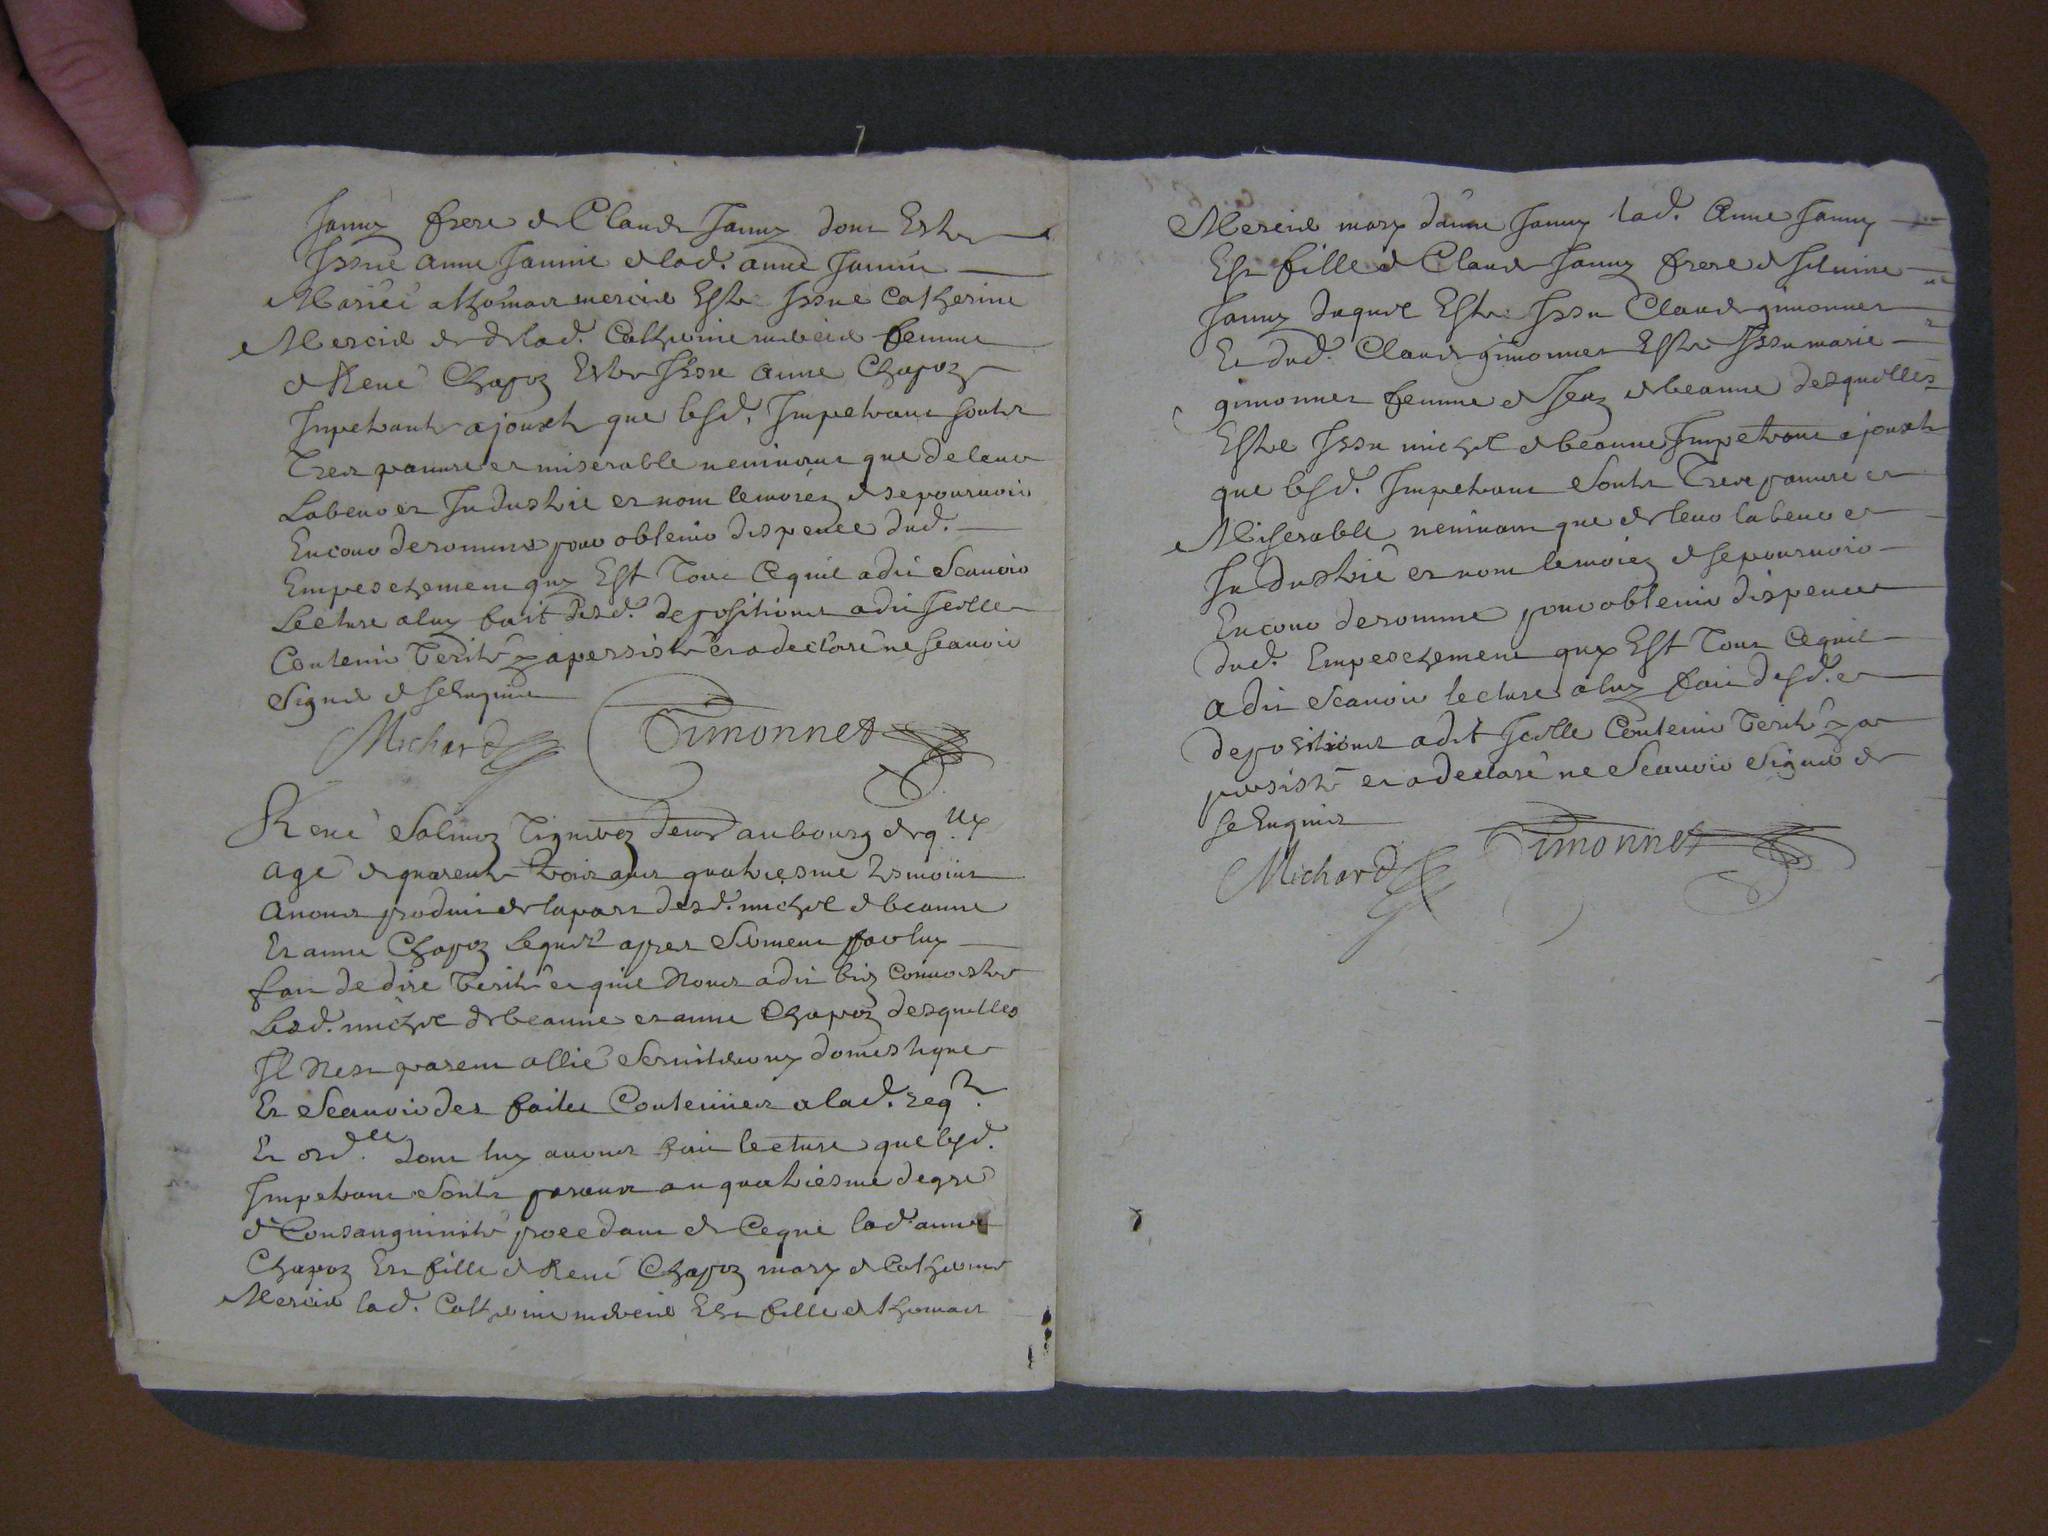 Jamy frere de Claude Jamy dont Estre
Issue anne Jamin de lad. anne Jamin
Mariée a thomas mercier Estre Issue Catherine
Mercier de de lad. Catherine mercier femme
de René Chapoz Estre Issue anne Chapoz
Impetrante ajouste que lesd. Impetrans sontz
Tres pauvre et miserable ne vivans que de leur
Labeur et Industrie et nont le moiez de se pourvoir
En cour de romme pour obtenir dispence dud.
Empeschement quy Est Tout Ce quil a dit Scavoir
Lecture a luy fait desd. depositions a dit Icelle
Contenir Verité y a persisté et a declaré ne scavoir
Signer de ce Enquis
Michard Simonnet
René Salmoz Vigneroz demt au bourg de q.
agé de quarente trois ans quatriesme tesmoins
avons produit de la part desd. michel de beaune
Et anne Chapoz Lequel apres Serment par luy
fait de dire Verité et quil Nous a dit biez Connoistre
Lesd. michel de beaune et anne Chapoz desquelles
Il Nest parent allié Serviteur ny domestique
Et Scavoir des faites Contenües a lad. reqte
Et ord.ce dont luy avons fait lecture que lesd.
Impetrans Sontz parans au quatriesme degre
de Consanguinité procedant de Ce que lad. anne
Chapoz Est fille de René Chapoz mary de Catherine
Mercier lad. Catherine mercier Est fille de thomas
Mercier mary danne Jamy lad. Anne Jamy
Est fille de Claude Jamy frere de Silvine
Jamy duquel Estre Issu Claude gimonnet
Et dud. Claude gimonnet Estre Issu marie
gimonnet femme de Jeaz de beaune desquelles
Estre Issu michel de beaune Impetrant ajouste
que lesd. Impetrans Sontz Tres pauvre et
Miserable ne vivans que de leur labeur et
Industrie et nont le moiez de se pourvoir
En cour de romme pour obtenir dispence
dud. Empeschement quy Est Tout Ce quil
a dit Scavoir lecture a luy fait desd.
depositions a dit Icelle Contenir Verité y a
persisté et a declaré ne Scavoir Signer de
ce Enquis
Michard Simonnet